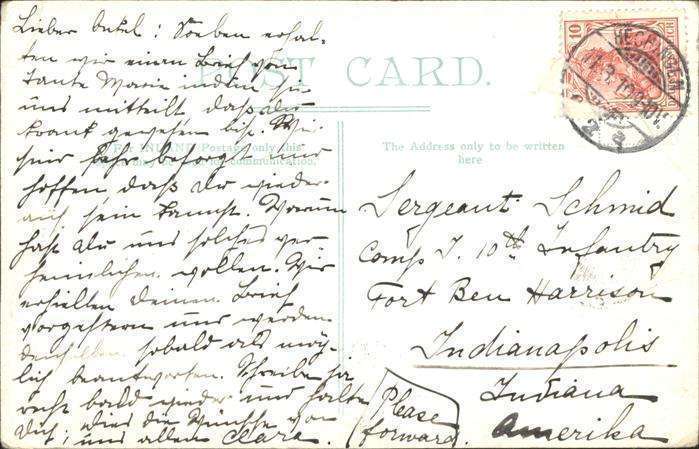 Lieber Onkel: Soeben erhal-
ten wir einen Brief von
Tante Marie indem sie
uns mitteilt daß du
krank gewesen bist. Wir
sind sehr besorgt und
hoffen, daß du wieder
auf sein kannst. Warum
hast du uns solches ver-
heimlichen wollen. Wir
erhielten deinen Brief
vorgestern und werden
denselben sobald als mög-
lich beantworten. Schreibe ja
recht bald wieder und halte
dich; dies die Wünsche von
uns allen Clara.
POST CARD.
For INLAND Postage only this
communication.
The Address only to be written
here
Sergeant Schmid
Comp I. 10th Infantry
Fort Ben Harrison
Indianapolis
Indiana
Amerika
Please
forward.
10